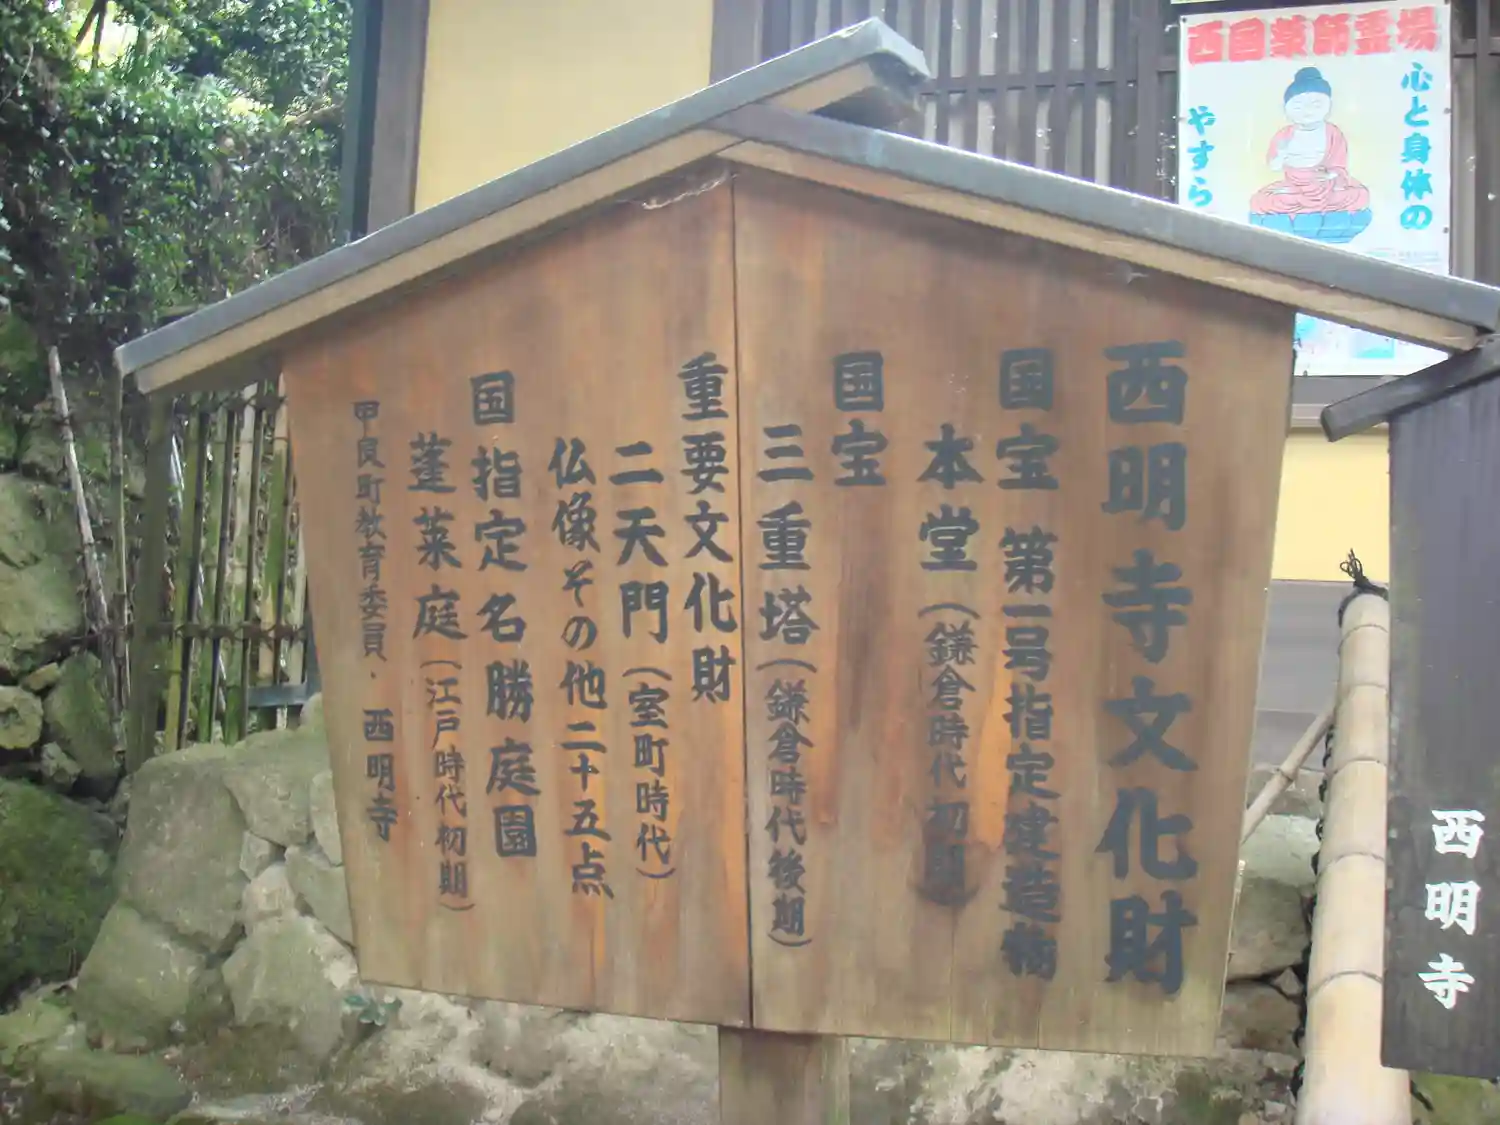 西明寺文化財
国宝 第一号指定建造物
本堂(鎌倉時代初期)
国宝
三重塔(鎌倉時代後期)
重要文化財
二天門(室町時代)
仏像その他二十五点
国指定名勝庭園
蓬莱庭(江戸時代初期)
甲良町教育委員、西明寺
西国薬師霊場
心と身体の
やすら
西明寺